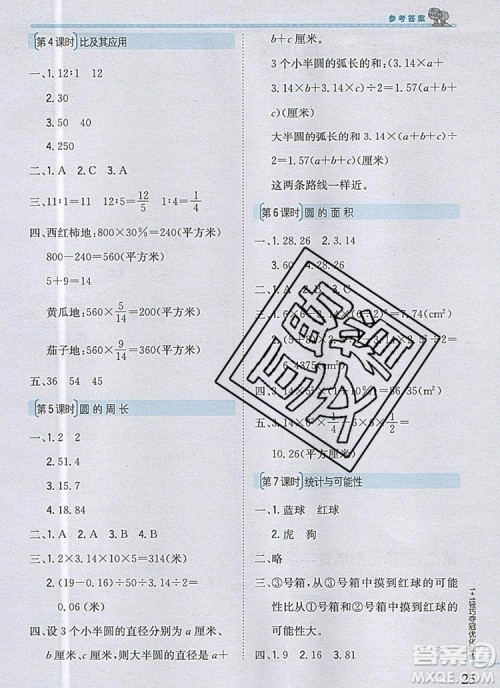 参考答案
第4课时 比及其应用
一、1. 12∶1 12
2. 30
3. 50 40
4. 250
二、1. A 2. C 3. A
三、11∶1=11 12∶5=12/5 1∶4=1/4
四、西红柿地：800×30%=240(平方米)
800-240=560(平方米)
5+9=14
黄瓜地：560×5/14=200(平方米)
茄子地：560×9/14=360(平方米)
五、36 54 45
第5课时 圆的周长
一、1. 2 2
2. 51.4
3. 15.7
4. 18.84
二、1. B 2. A 3. B
三、1. 2×3.14×10×5=314(米)
2. (19-0.16)÷3.14÷2÷50=
0.06(米)
四、设3个小半圆的直径分别为a米、
b米、c米，则大半圆的直径为a+
b+c(米)
3个小半圆的弧长的和：3.14×(a+
b+c)÷2=1.57×(a+
b+c)(米)
大半圆的弧长：3.14×(a+b+c)÷
2=1.57×(a+b+c)(米)
这两条路线一样近。
第6课时 圆的面积
一、1. 28.26 2. 3.14
3. 6 4. 60 28.26
二、1. A 2. B 3.
三、1. 6×6
2.
(cm²)
四、3.14×
10.26(平方米)
第7课时 统计与可能性
一、1. 蓝球 红球
2. 虎 狗
二、略
三、从①号箱和②号箱中摸到红球的可
能性相等，从③号箱中摸到红球的
可能性最大。
四、1. 9 2. 16 3. 81
1+1轻巧夺冠优化
25